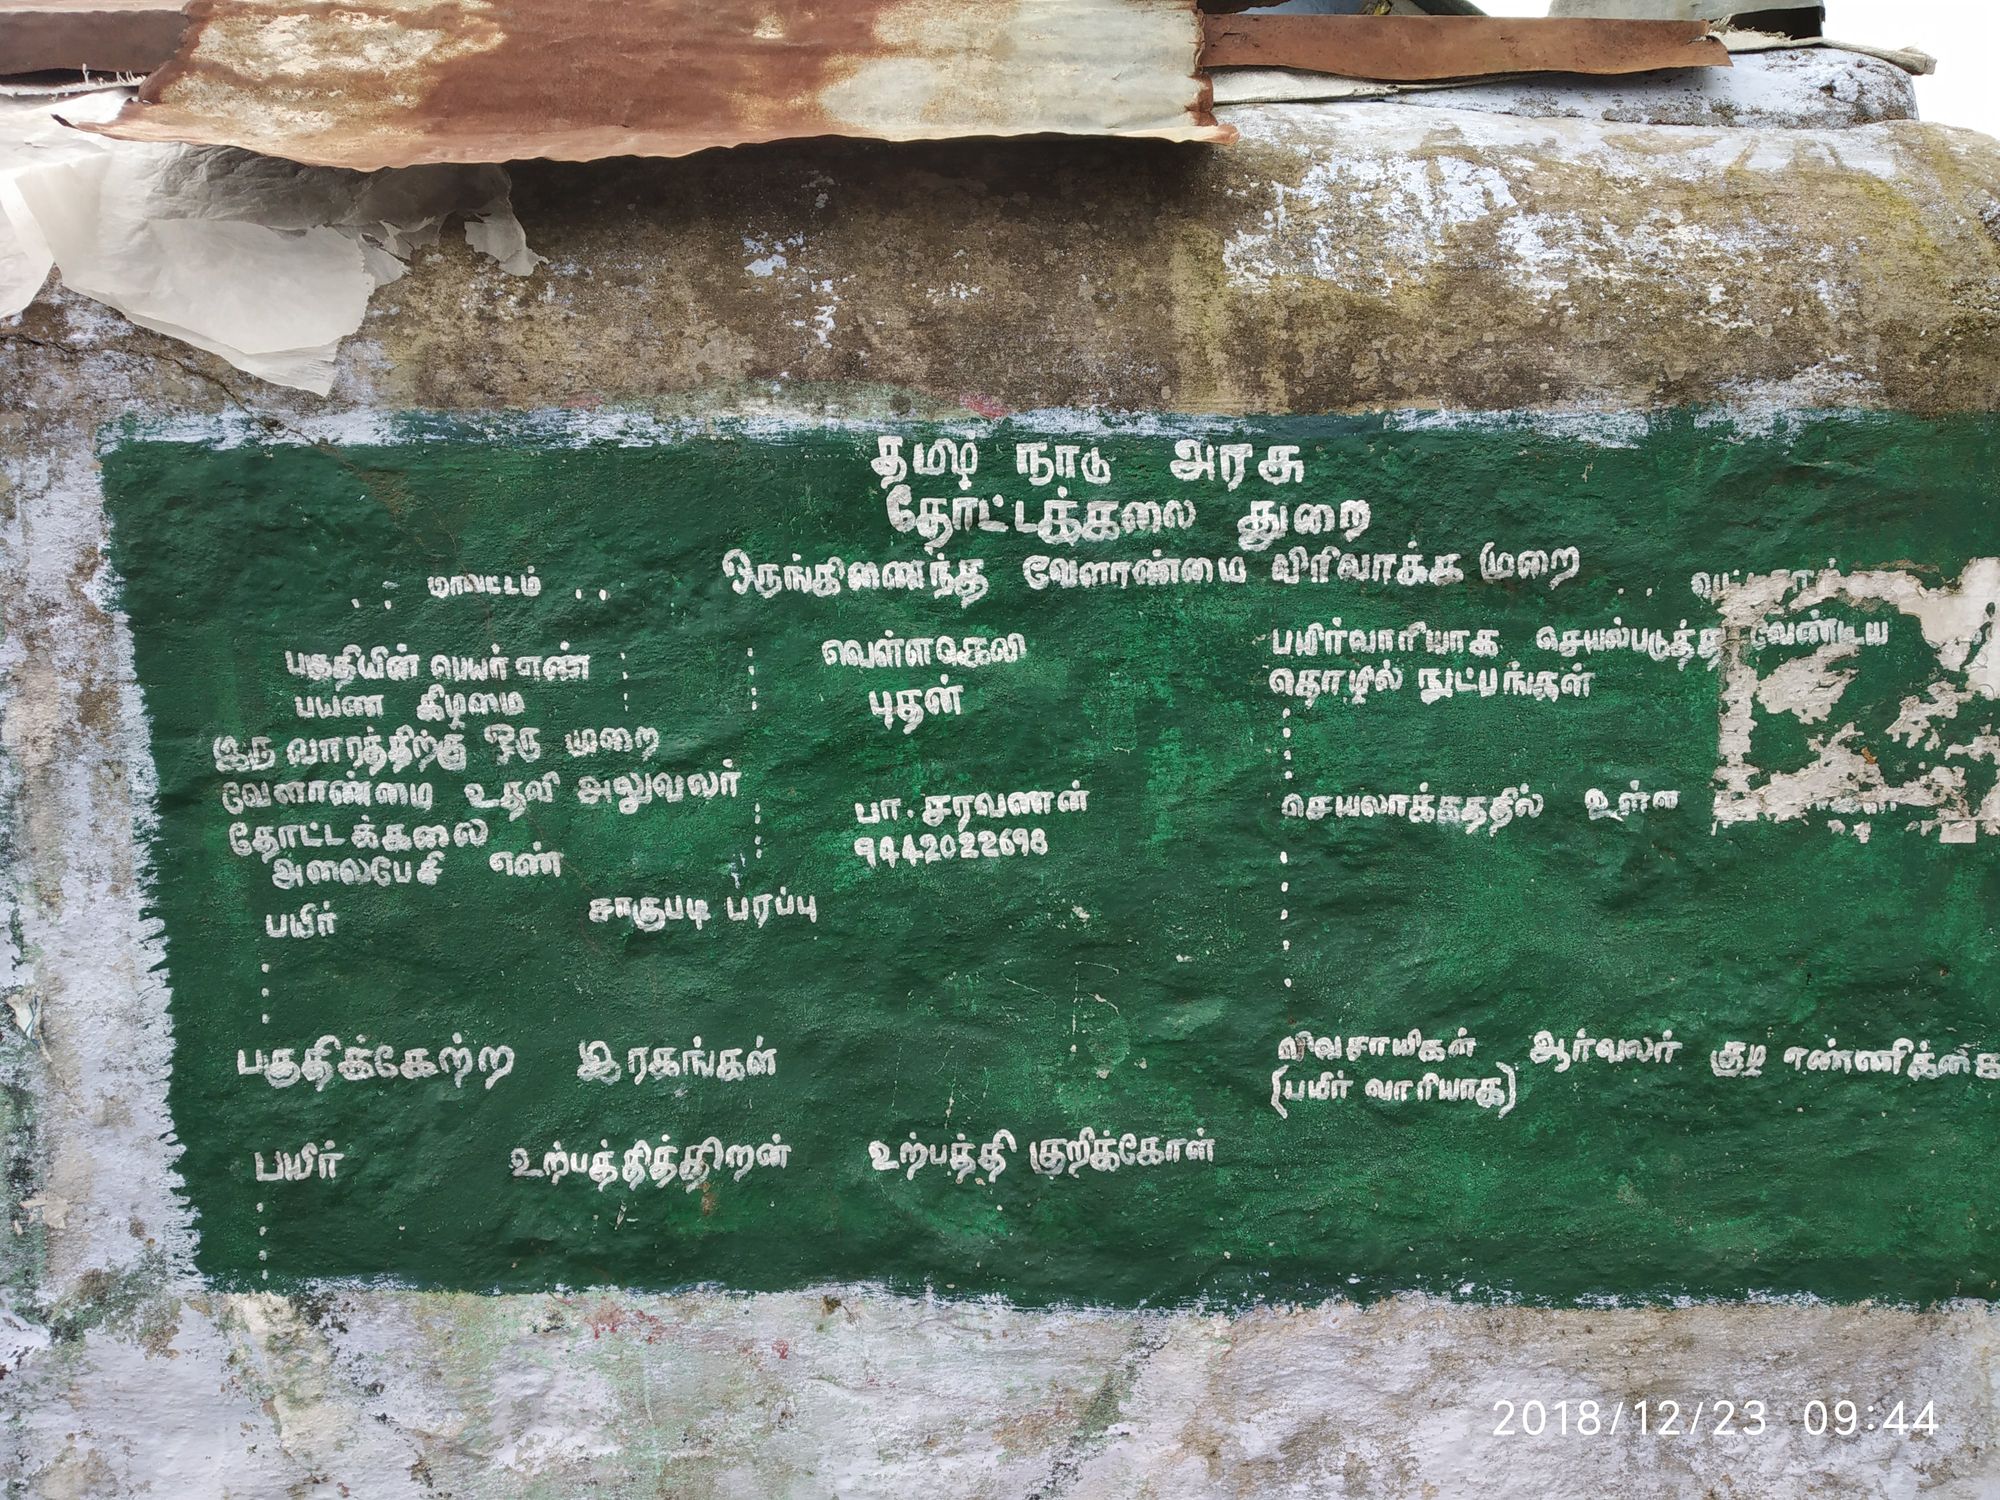 தமிழ் நாடு அரசு
தோட்டக்கலை துறை
ஒருங்கிணைந்த வேளாண்மை விரிவாக்க முறை
.. மாவட்டம் ..
பகுதியின் பெயர் எண் : : வெள்ளகெவி
பயண கிழமை : : புதன்
இரு வாரத்திற்கு ஒரு முறை
வேளாண்மை உதவி அலுவலர் : பா. சரவணன்
தோட்டக்கலை
அலைபேசி எண் : 9442022698
பயிர் சாகுபடி பரப்பு
பகுதிக்கேற்ற இரகங்கள்
பயிர் உற்பத்தித்திறன் உற்பத்தி குறிக்கோள்
பயிர்வாரியாக செயல்படுத்த வேண்டிய
தொழில் நுட்பங்கள்
செயலாக்கததில் உள்ள
விவசாயிகள் ஆர்வலர் குழு எண்ணிக்கை
(பயிர் வாரியாக)
2018/12/23 09:44